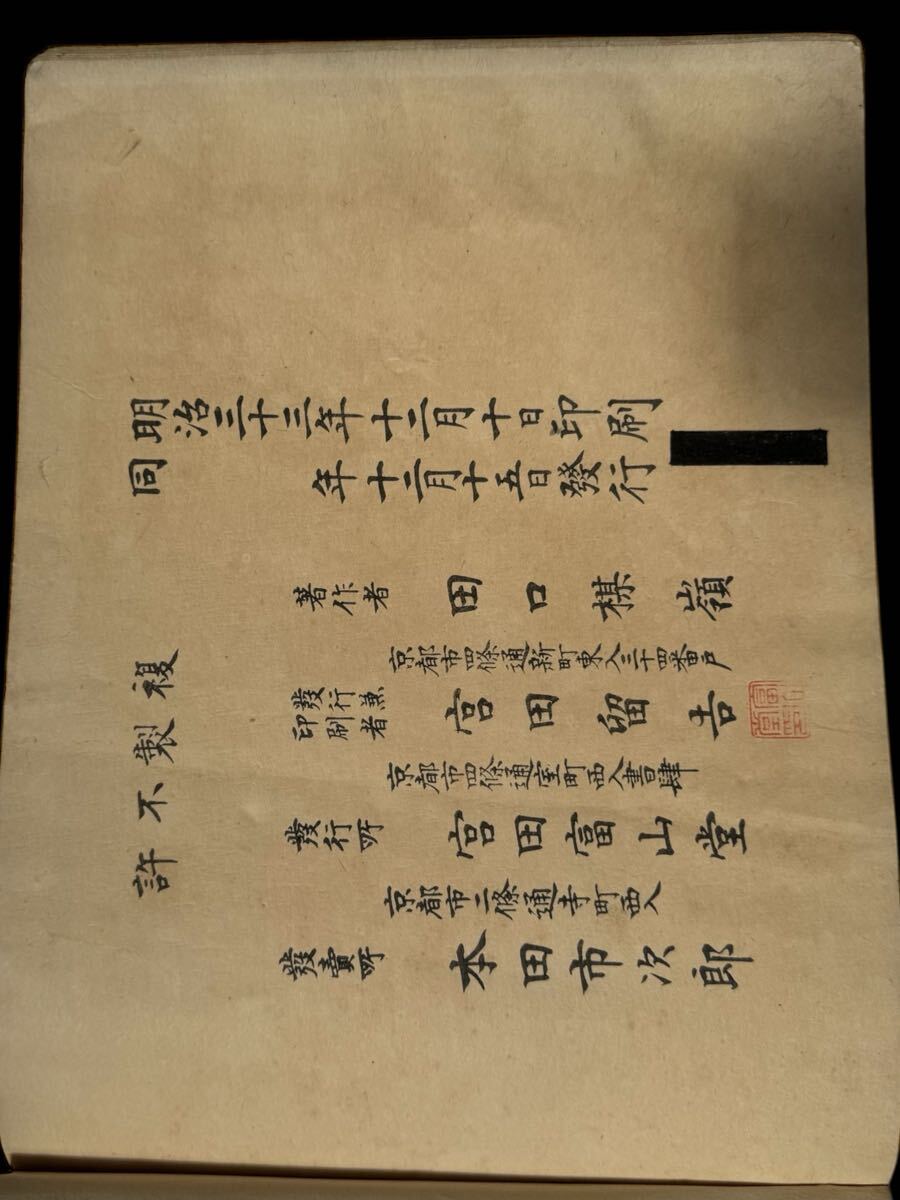 明治三十三年十二月十日印刷
同年十二月十五日發行
複製不許
著作者 田口棋嶺
京都市四條通新町東入三十四番戸
發行兼
印刷者 宮田留吉
京都市四條通室町西入書肆
發行所 宮田富山堂
京都市二條通寺町西入
發賣所 本田市次郎